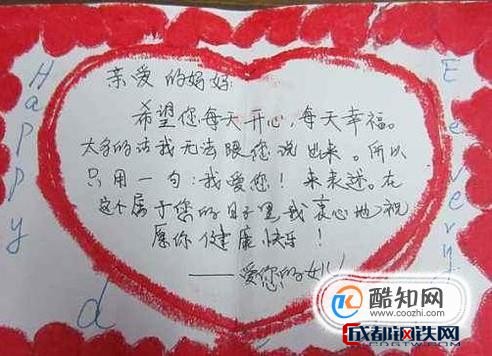 亲爱的妈妈:
希望您每天开心,每天幸福。
太多的话我无法跟您说出来。所以
只用一句:我爱您!来表述。在
这个属于您的日子里,我衷心地祝
愿你健康快乐!
——爱您的女儿
Happy
Every
d
酷知网
www.coozhi.com
成都钢铁网